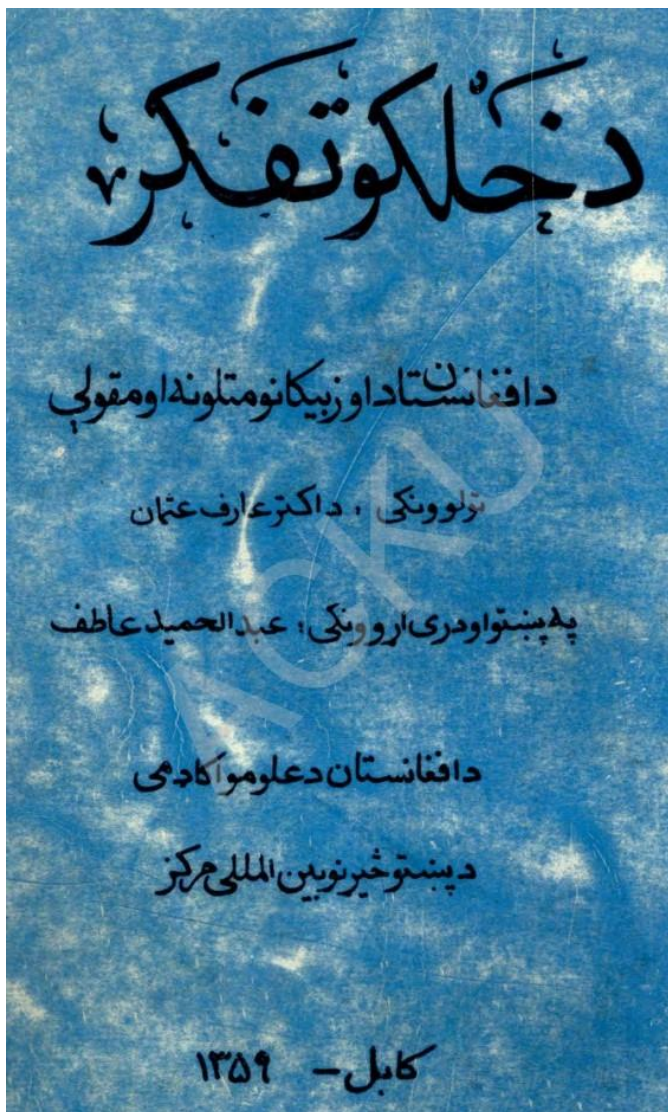 د خلکو تفکر
د افغانستان د اوزبیکانو متلونه او مقولې
ټولوونکی : داکتر عارف عثمان
په پښتو او دری اړوونکی : عبدالحمید عاطف
د افغانستان د علومو اکادمی
د پښتو څیړنو بین المللی مرکز
کابل – ۱۳۵۹
ACKU